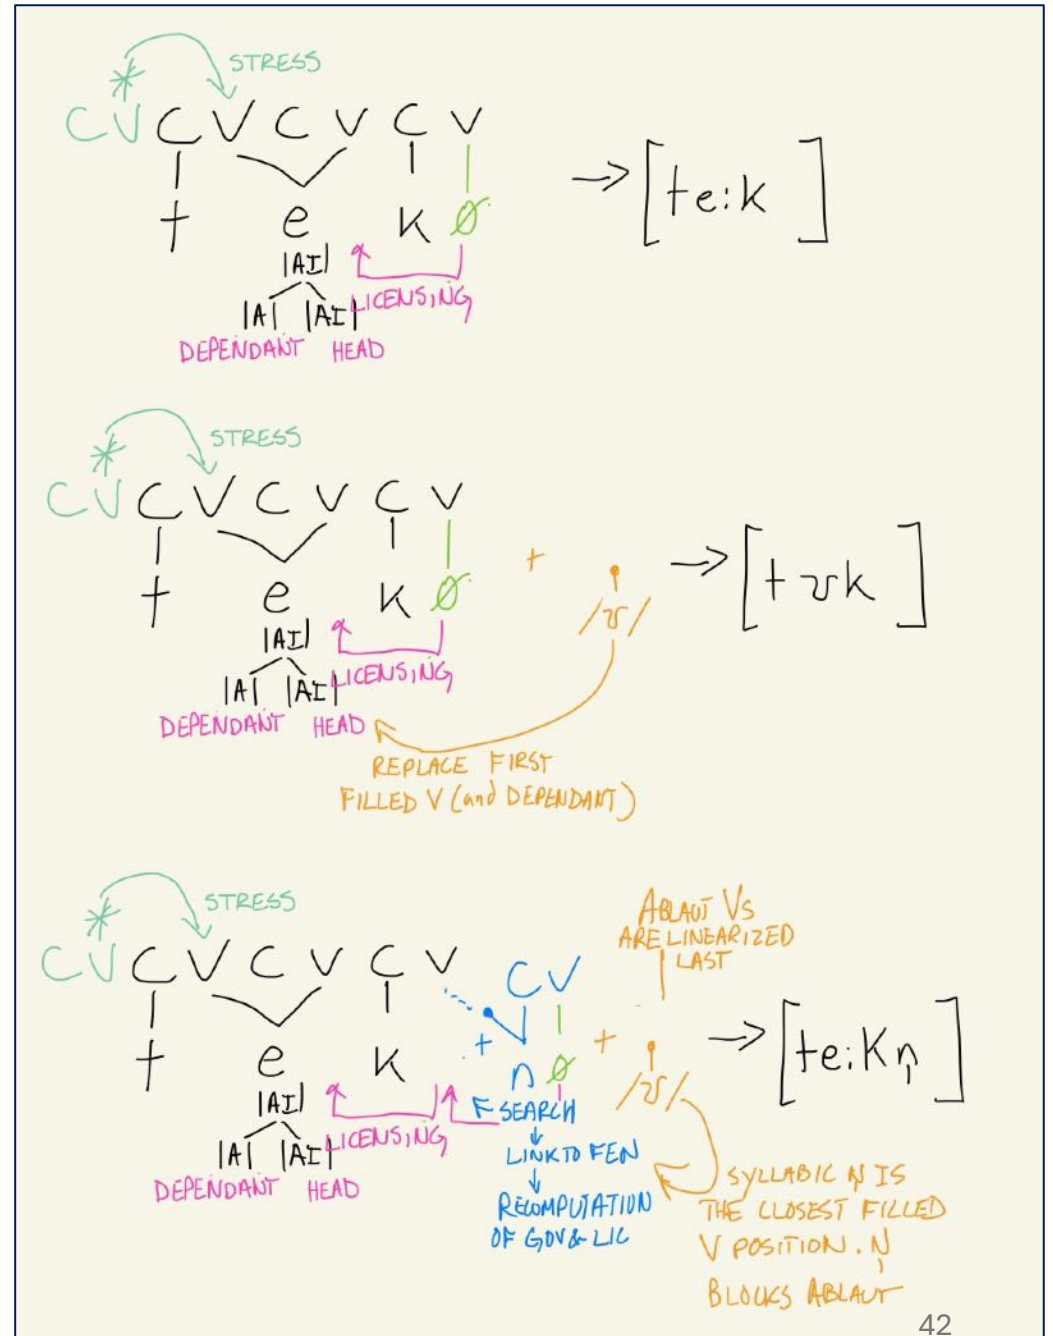 STRESS
CVCVCVCV
t e k ∅
→ [te:k]
|AI|
LICENSING
|A| |AI|
DEPENDANT HEAD
STRESS
CVCVCVCV
t e k ∅ + /ʊ/ → [tʊk]
|AI|
LICENSING
|A| |AI|
DEPENDANT HEAD
REPLACE FIRST
FILLED V (and DEPENDANT)
STRESS
ABLAUT Vs
ARE LINEARIZED
LAST
CVCVCVCV CV
t e k + n ∅ + /ʊ/ → [te:kn̩]
|AI|
LICENSING
|A| |AI|
DEPENDANT HEAD
F SEARCH
↓
LINK TO FEN
↓
RECOMPUTATION
OF GOV & LIC
SYLLABIC N̩ IS
THE CLOSEST FILLED
V POSITION. N̩
BLOCKS ABLAUT
42